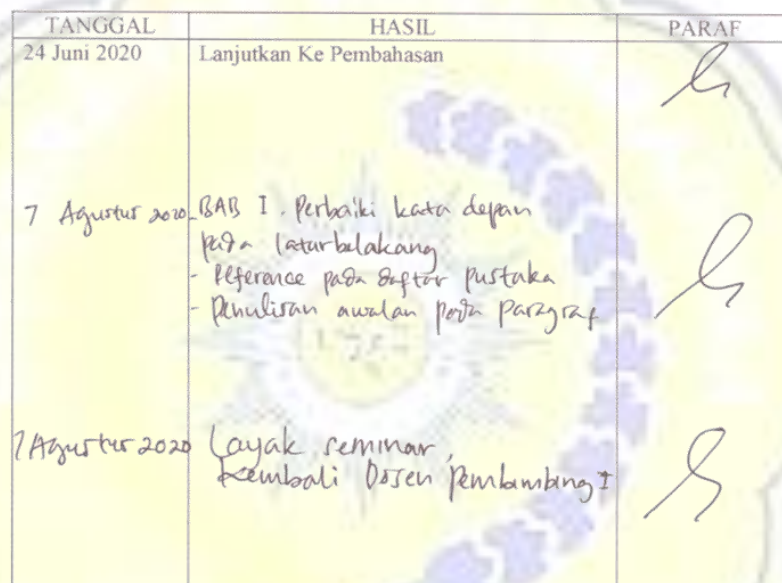 TANGGAL HASIL PARAF
24 Juni 2020 Lanjutkan Ke Pembahasan
7 Agustus 2020 - BAB I. Perbaiki kata depan
pada latarbelakang
- Reference pada daftar pustaka
- Penulisan awalan pada paragraf
7 Agustus 2020 Layak seminar,
Kembali Dosen Pembimbing I